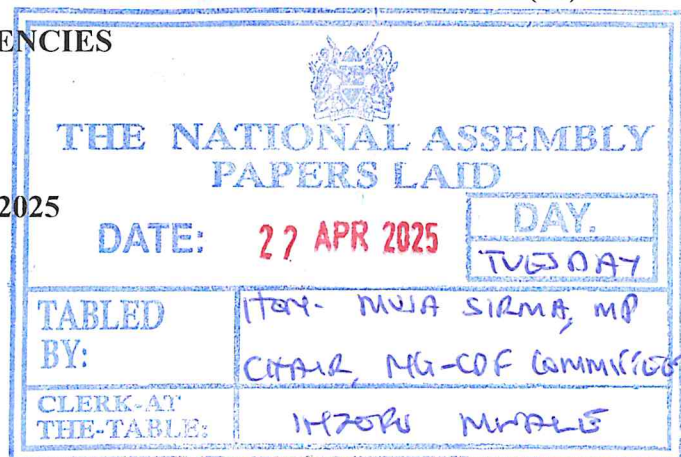 ENCIES
THE NATIONAL ASSEMBLY
PAPERS LAID
2025
DATE: 22 APR 2025
DAY.
TUESDAY
TABLED BY:
Hon. Musa Sirma, MP
Chair, NG-CDF Committee
CLERK-AT
THE-TABLE:
Inzofu Mwale